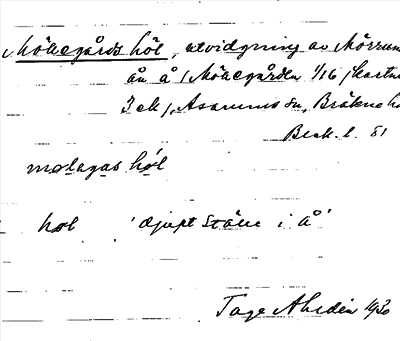 Möllegårds höl, utvidgning av Mörrum
ån å (Möllegården 1/16 (kartan
3 ek), Asarums sn, Bräkne h
Blek. l. 81
höl 'djupt ställe i å'
Tage Ahldén 1930